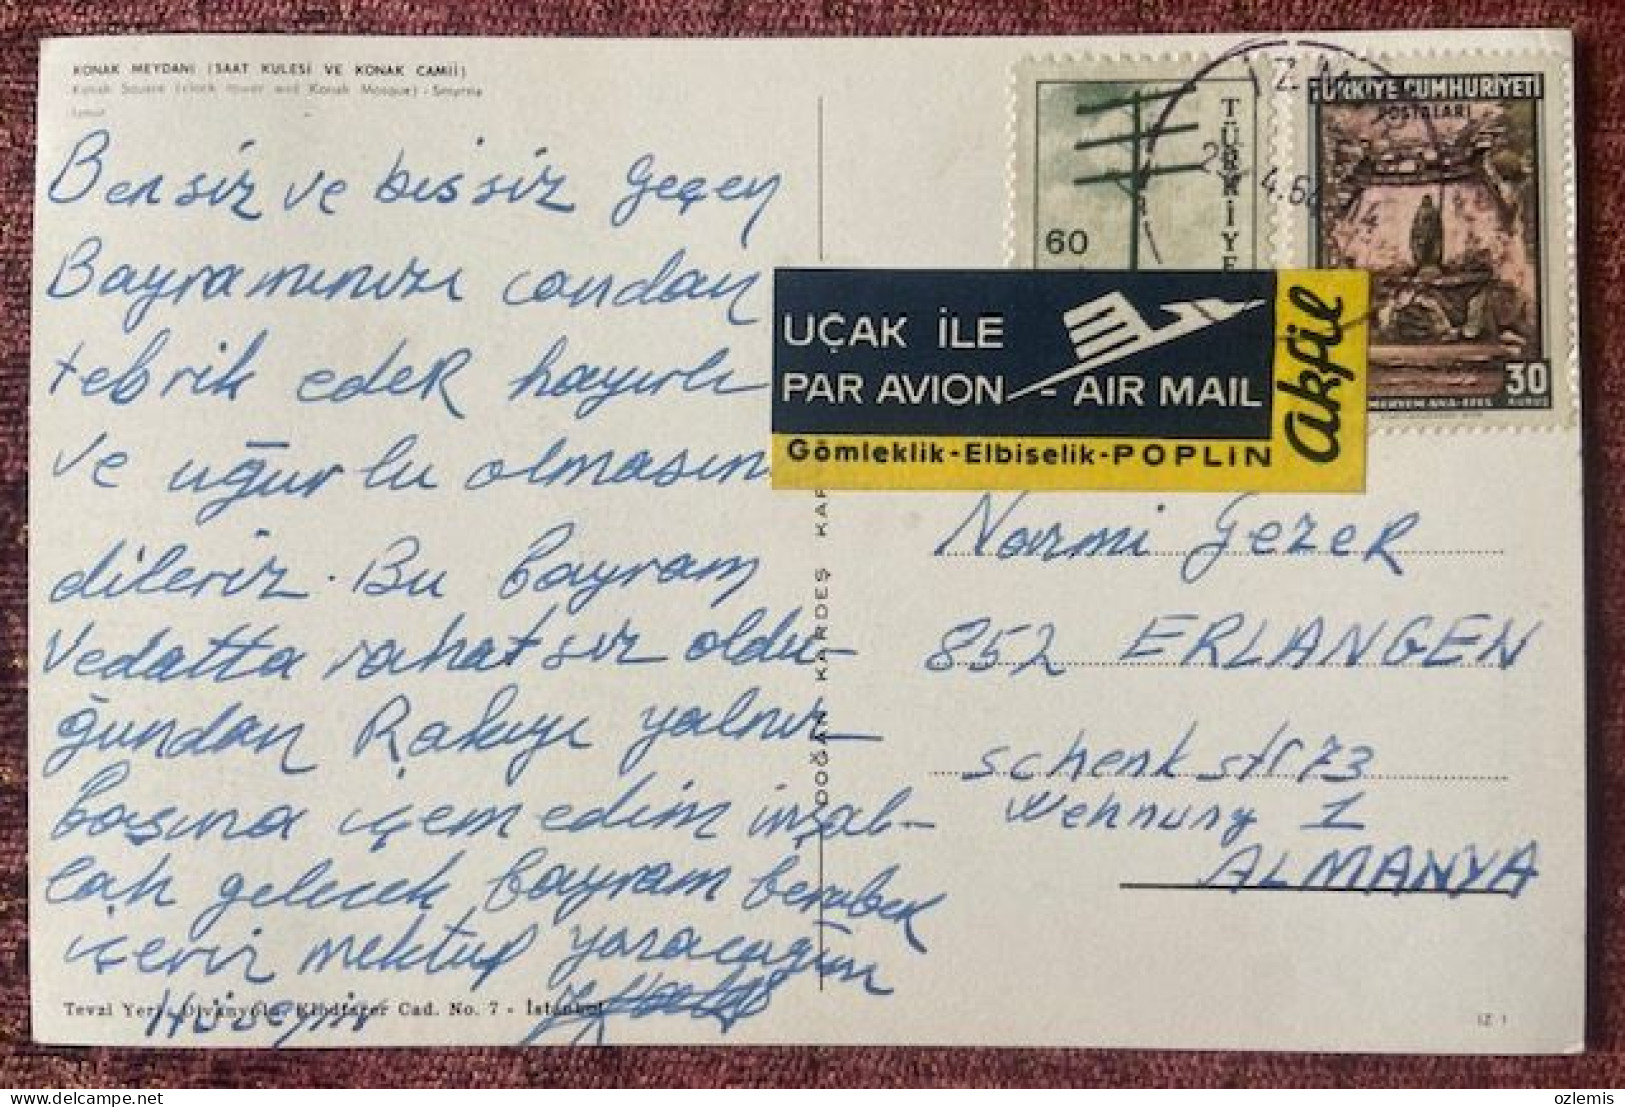 KONAK MEYDANI (SAAT KULESİ VE KONAK CAMİİ)
Konak Square (clock tower and Konak Mosque) - Smyrna
İzmir
Bensiz ve bissiz geçen
Bayramınızı candan
tebrik eder hayırlı
ve uğurlu olmasını
dileriz. Bu bayram
Vedatta rahatsız oldu-
ğundan Rakıyı yalnız
başına içemedim inşal-
lah gelecek bayram beraber
içeriz mektup yazacağım
Hüseyin
Tevzi Yeri: Divanyolu, Klodfarer Cad. No. 7 - İstanbul
DOĞAN KARDEŞ
TÜRKİYE
60
TÜRKİYE CUMHURİYETİ
POSTALARI
30
KURUŞ
MERYEM ANA-EFES
4.6
14
UÇAK İLE
PAR AVION - AIR MAIL
Gömleklik-Elbiselik-POPLİN
akfil
Nazmi Gezer
852 ERLANGEN
Schenk str 73
Wehnung 1
ALMANYA
İZ 1
ozlemis
delcampe.net